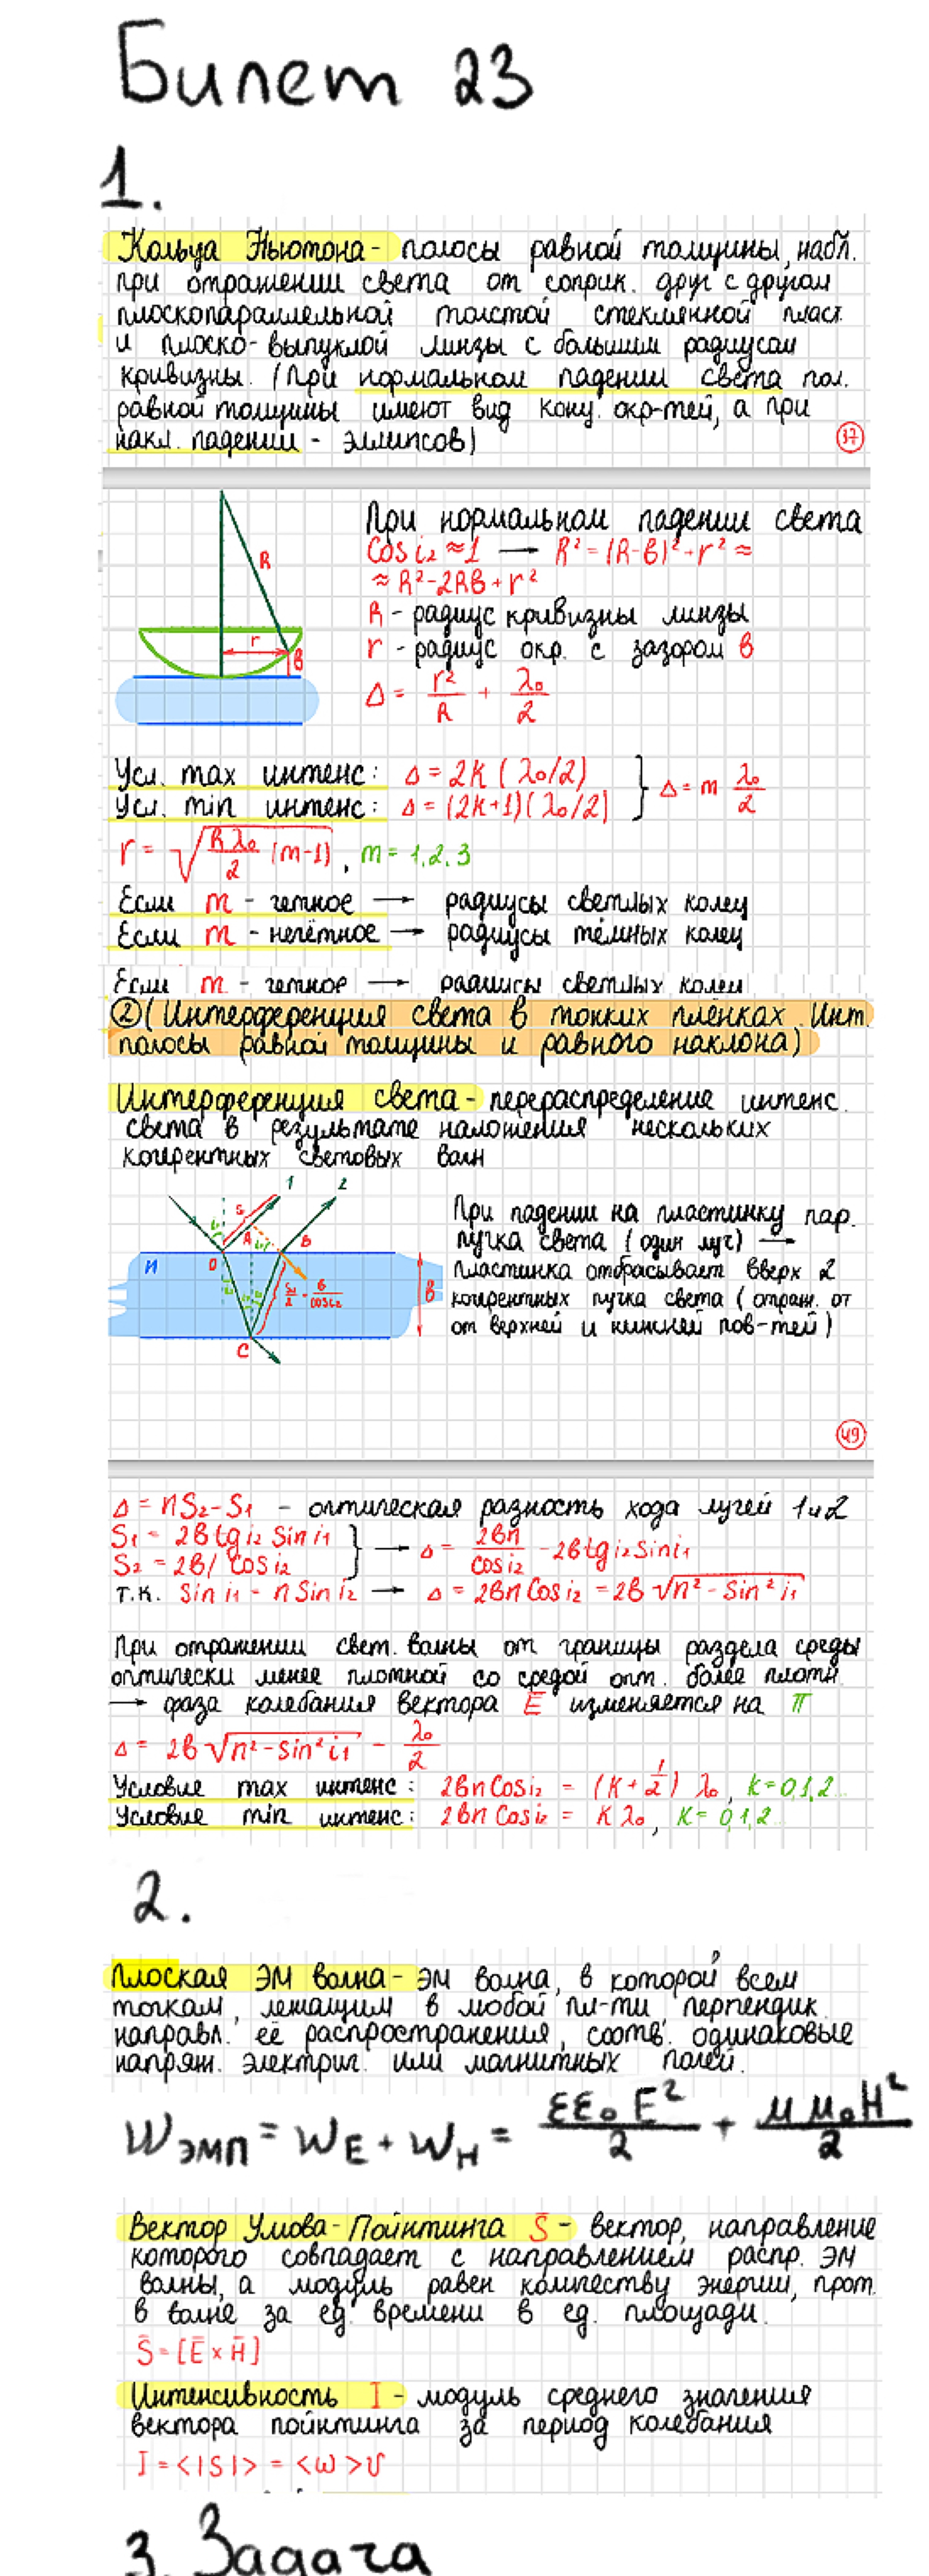 Билет 23
1.
Кольца Ньютона - полосы равной толщины, набл.
при отражении света от соприк. друг с другом
плоскопараллельной толстой стеклянной пласт.
и плоско-выпуклой линзы с большим радиусом
кривизны. (При нормальном падении света пол.
равной толщины имеют вид конц. окр-тей, а при
накл. падении - эллипсов)
37
При нормальном падении света
Cos i₂ ≈ 1 → R² = (R-b)² + r² ≈
≈ R² - 2Rb + r²
R - радиус кривизны линзы
r - радиус окр. с зазором b
Δ = r²/R + λ₀/2
R
r
b
Усл. max интенс: Δ = 2k (λ₀/2)
Усл. min интенс: Δ = (2k+1)(λ₀/2) } Δ = m λ₀/2
r = √(Rλ₀/2 (m-1)), m = 1,2,3
Если m - четное → радиусы светлых колец
Если m - нечётное → радиусы тёмных колец
Если m - четное → радиусы светлых колец
② (Интерференция света в тонких плёнках. Инт.
полосы равной толщины и равного наклона)
Интерференция света - перераспределение интенс.
света в результате наложения нескольких
когерентных световых волн
1 2
S₁ A B
n O
S₂/2 = b/cos i₂
b
C
При падении на пластинку пар.
пучка света (один луч) →
пластинка отбрасывает вверх 2
когерентных пучка света (отраж. от
от верхней и нижней пов-тей)
49
Δ = nS₂ - S₁ - оптическая разность хода лучей 1 и 2
S₁ = 2b tg i₂ Sin i₁
S₂ = 2b / Cos i₂ } → Δ = 2bn/Cos i₂ - 2b tg i₂ Sin i₁
т.к. Sin i₁ = n Sin i₂ → Δ = 2bn Cos i₂ = 2b √(n² - Sin² i₁)
При отражении свет. волны от границы раздела среды
оптически менее плотной со средой опт. более плотн.
→ фаза колебания вектора E̅ изменяется на π
Δ = 2b √(n² - Sin² i₁) - λ₀/2
Условие max интенс: 2bn Cos i₂ = (k + 1/2) λ₀, k = 0,1,2..
Условие min интенс: 2bn Cos i₂ = k λ₀, k = 0,1,2..
2.
Плоская ЭМ волна - ЭМ волна, в которой всем
точкам, лежащим в любой пл-ти перпендик.
направл. её распространения, соотв. одинаковые
напряж. электрич. или магнитных полей.
W эмп = W_E + W_H = εε₀E²/2 + μμ₀H²/2
Вектор Умова-Пойнтинга S̅ - вектор, направление
которого совпадает с направлением распр. ЭМ
волны, а модуль равен количеству энергии, прот.
в волне за ед. времени в ед. площади.
S̅ = [E̅ × H̅]
Интенсивность I - модуль среднего значения
вектора пойнтинга за период колебания
I = <|S|> = <ω>υ
3. Задача